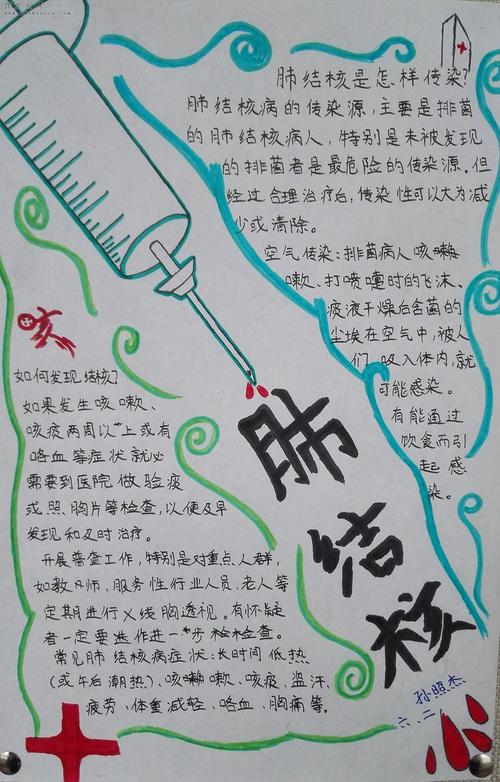 肺结核是怎样传染?
肺结核病的传染源,主要是排菌
的肺结核病人,特别是未被发现
的排菌者是最危险的传染源。但
经过合理治疗后,传染性可以大为减
少或清除。
空气传染:排菌病人咳嗽
嗽、打喷嚏时的飞沫。
痰液干燥后含菌的
尘埃在空气中,被人
们吸入体内,就
可能感染。
有能通过
饮食而引
起感
染。
如何发现结核?
如果发生咳嗽、
咳痰两周以上或有
咯血等症状就必
需要到医院做验痰
或照胸片等检查,以便及早
发现和及时治疗。
开展普查工作,特别是对重点人群,
如教师、服务性行业人员、老人等
定期进行X线胸透视。有怀疑
者一定要进一步检查。
常见肺结核病症状:长时间低热
(或午后潮热)、咳嗽嗽、咳痰、盗汗、
疲劳、体重减轻、咯血、胸痛等。
肺
结
核
孙照杰
六、二